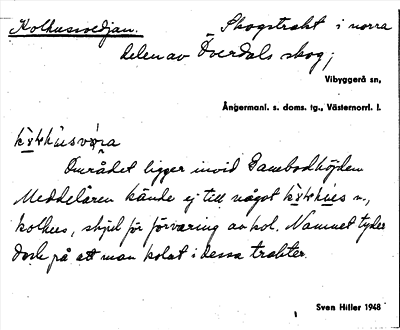 Kolhussvedjan. Skogstrakt i norra
delen av Överdals skog;
Vibyggerå sn,
Ångermanl. s. doms. tg., Västernorrl. l.
Området ligger invid Dambodhöjden
Meddelaren kände ej till något n.,
kolhus, skjul för förvaring av kol. Namnet tyder
dock på att man kolat i dessa trakter.
Sven Hiller 1948